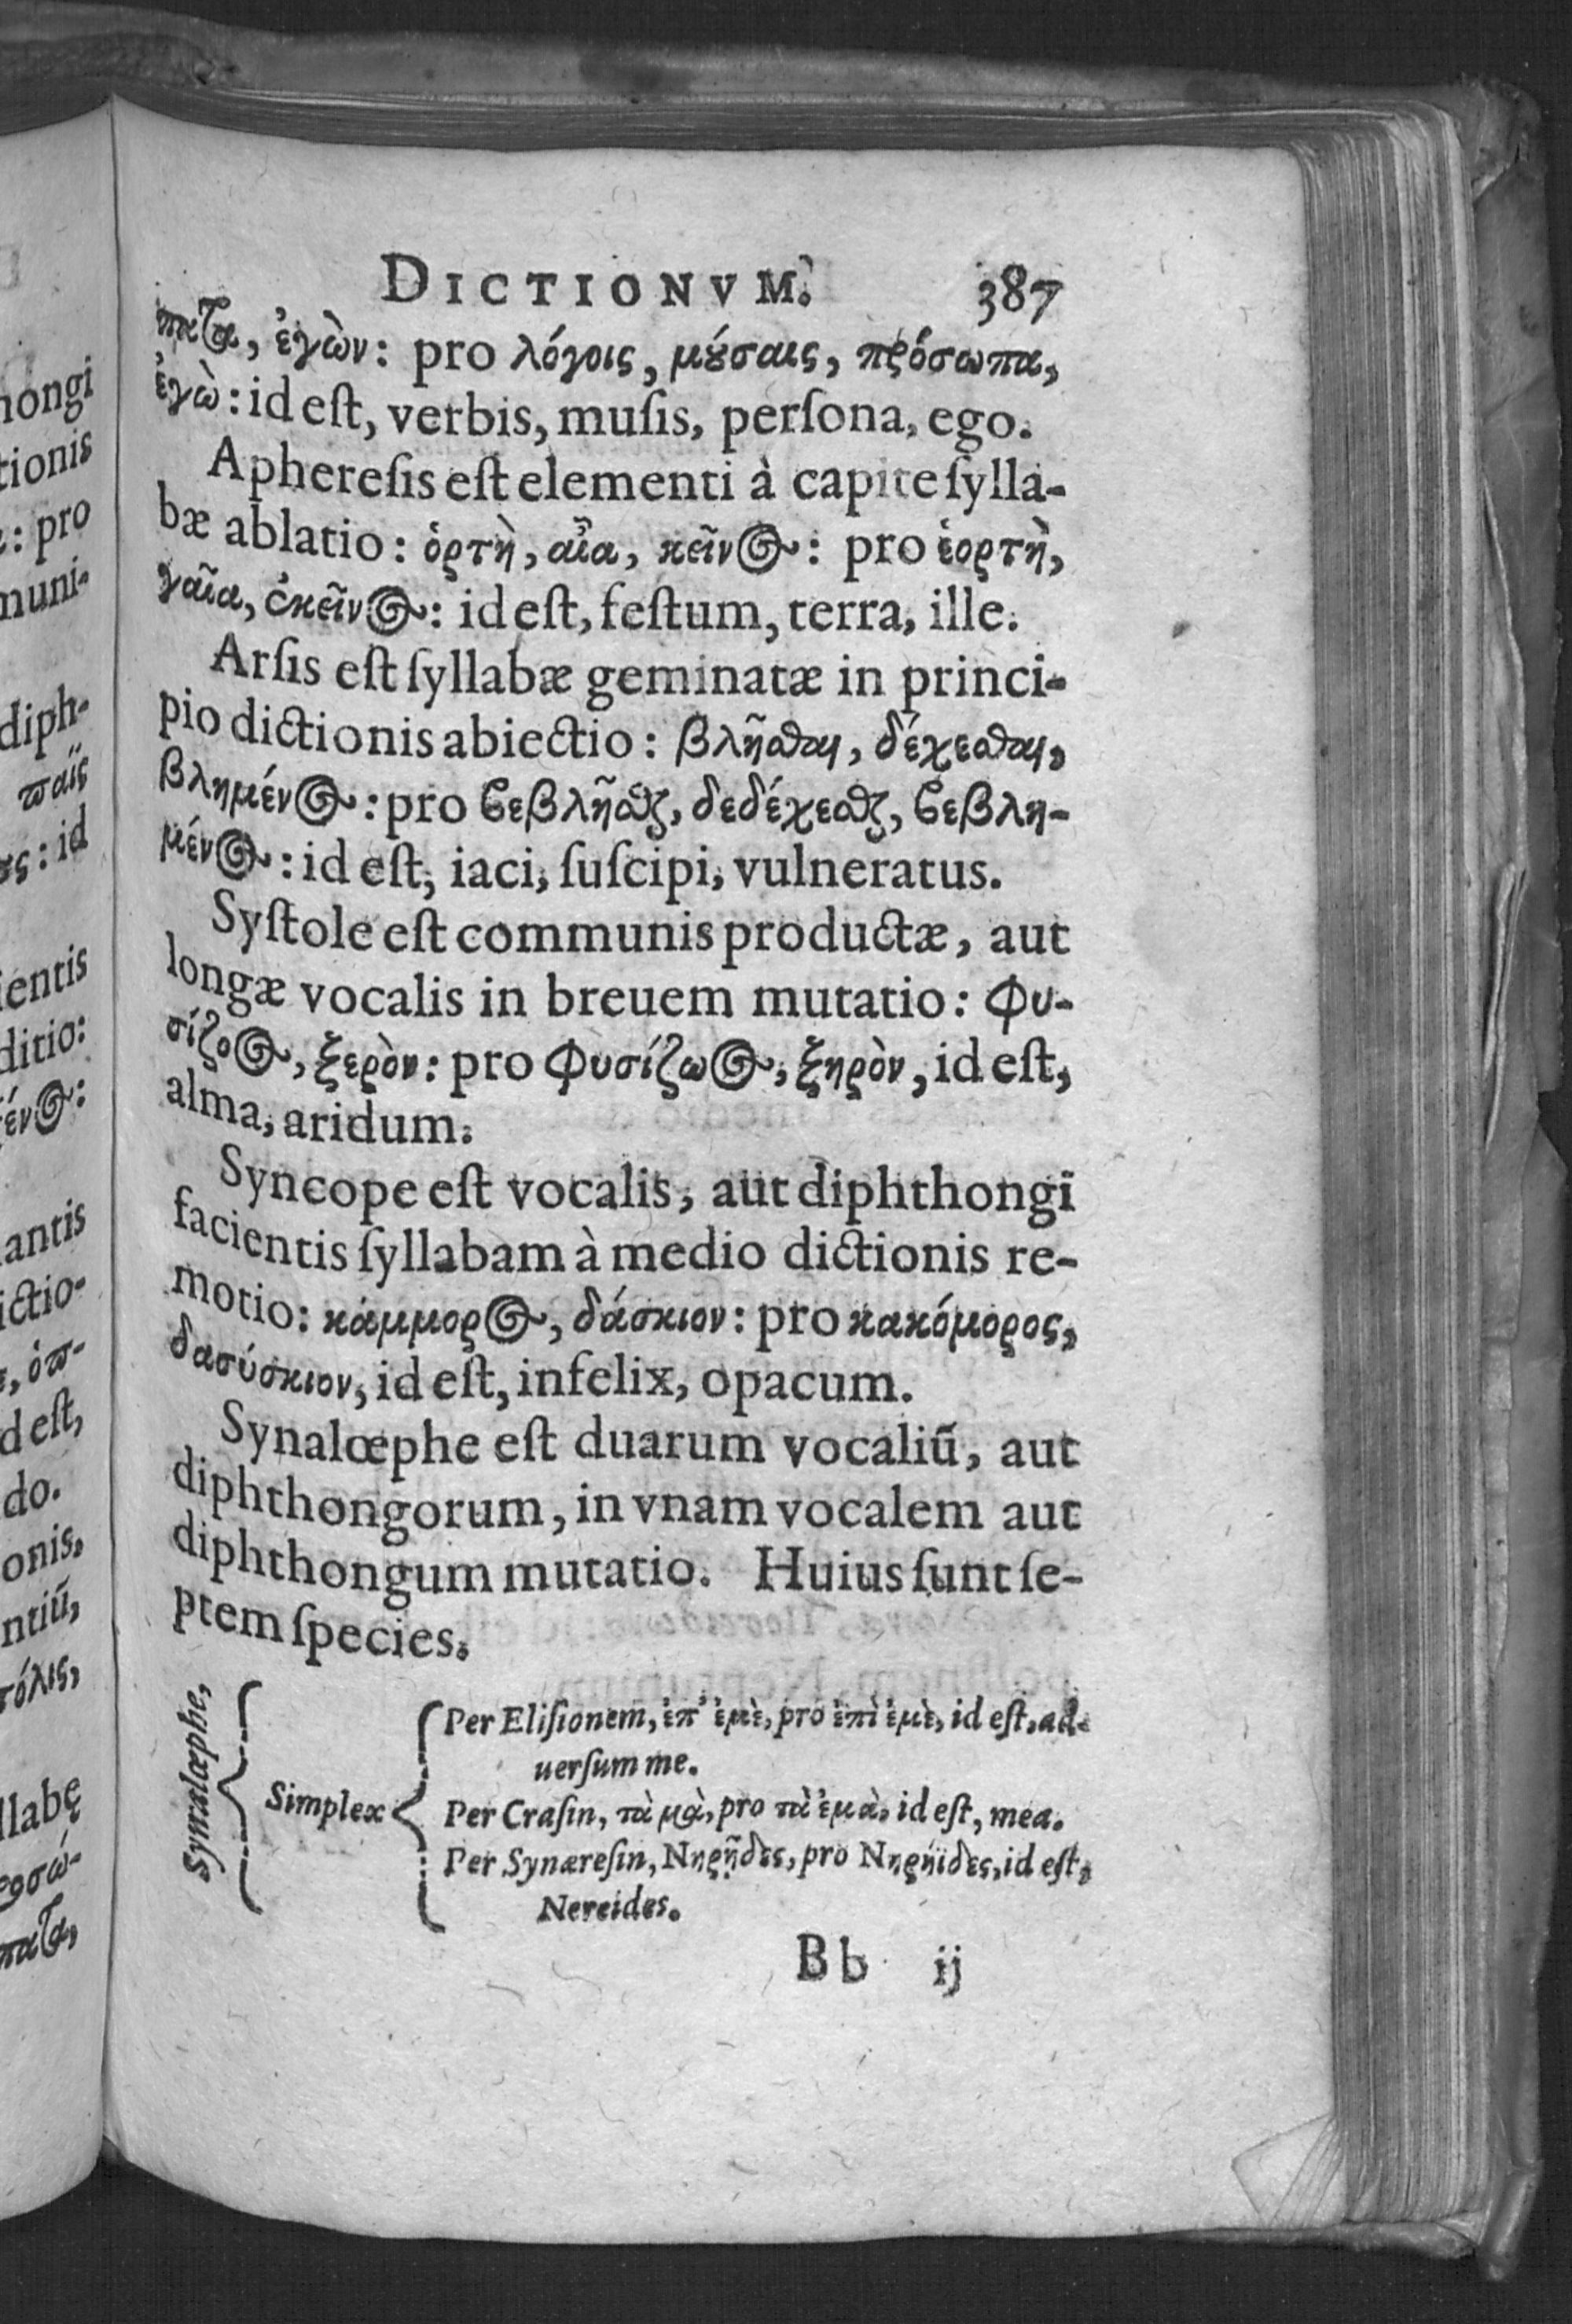 DICTIONVM. 387
πατα, ἐγὼν: pro λόγοις, μούσαις, πρόσωπα,
ἐγὼ: id eſt, verbis, muſis, perſona, ego.
Aphereſis eſt elementi à capite ſylla-
bæ ablatio: ὁρτὴ, αἶα, κεῖνος: pro ἑορτὴ,
γαῖα, ἐκεῖνος: id eſt, feſtum, terra, ille.
Arſis eſt ſyllabæ geminatæ in princi-
pio dictionis abiectio: βλῆσθαι, δέχεσθαι,
βλημένος: pro βεβλῆσθαι, δεδέχεσθαι, βεβλη-
μένος: id eſt, iaci, ſuſcipi, vulneratus.
Syſtole eſt communis productæ, aut
longæ vocalis in breuem mutatio: φυ-
σίζοος, ξερὸν: pro φυσίζωος, ξηρὸν, id eſt,
alma, aridum.
Syncope eſt vocalis, aut diphthongi
facientis ſyllabam à medio dictionis re-
motio: κάμμορος, δάσκιον: pro κακόμορος,
δασύσκιον, id eſt, infelix, opacum.
Synalœphe eſt duarum vocaliũ, aut
diphthongorum, in vnam vocalem aut
diphthongum mutatio. Huius ſunt ſe-
ptem ſpecies.
Synalœphe,
Simplex
Per Eliſionem, ἐπ' ἐμὲ, pro ἐπὶ ἐμὲ, id eſt, ad-
uerſum me.
Per Craſin, τὰ μὰ, pro τὰ ἐμὰ, id eſt, mea.
Per Synæreſin, Νηρῇδες, pro Νηρηίδες, id eſt,
Nereides.
Bb ij